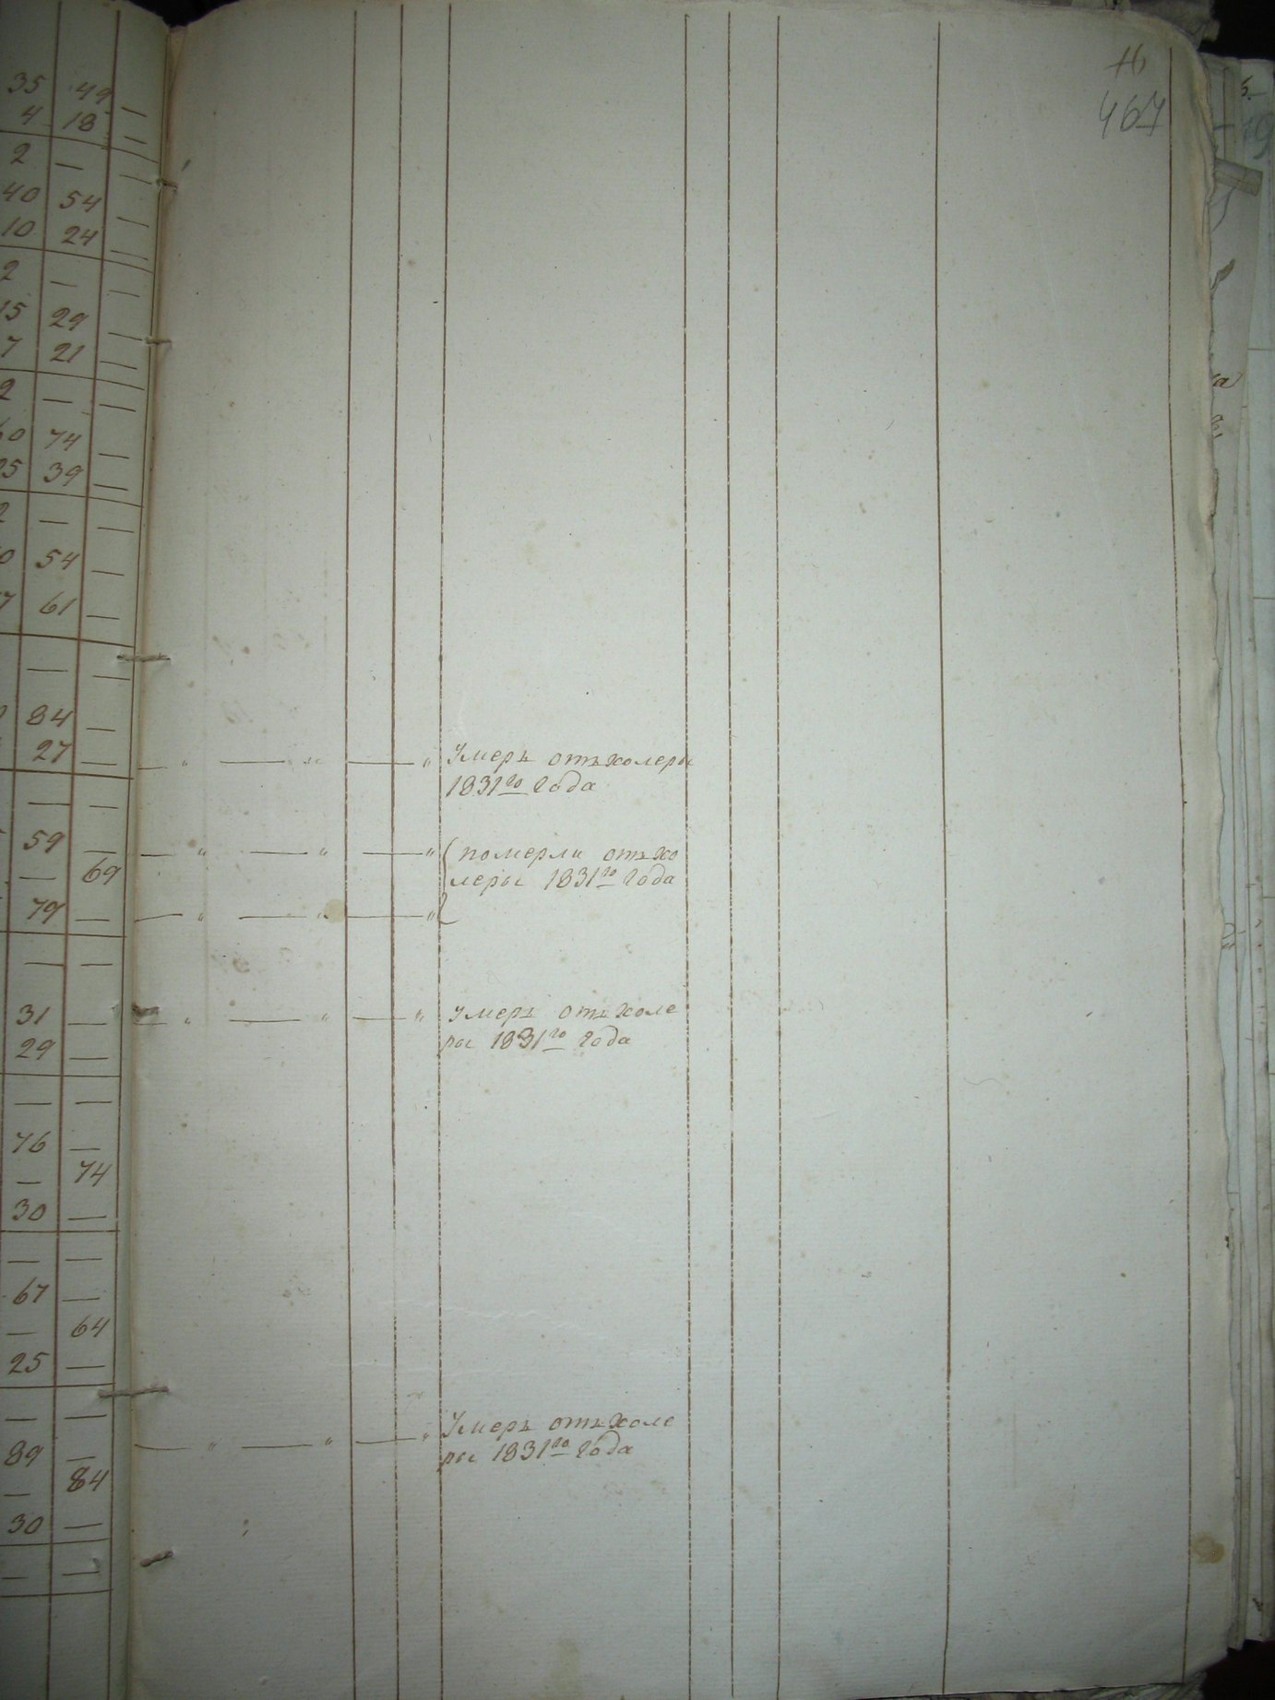 467
35 49 —
4 18 —
2 — —
40 54 —
10 24 —
2 — —
15 29 —
7 21 —
2 — —
60 74 —
25 39 —
— —
54 —
61 —
— —
84 —
27 —
— —
59 —
— 69
79 —
— —
31 —
29 —
— —
76 —
— 74
30 —
— —
67 —
— 64
25 —
— —
89 —
— 84
30 —
— —
Умеръ отъ холеры
1831го года
померли отъ хо
леры 1831го года
умеръ отъ холе
ры 1831го года
Умеръ отъ холе
ры 1831го года